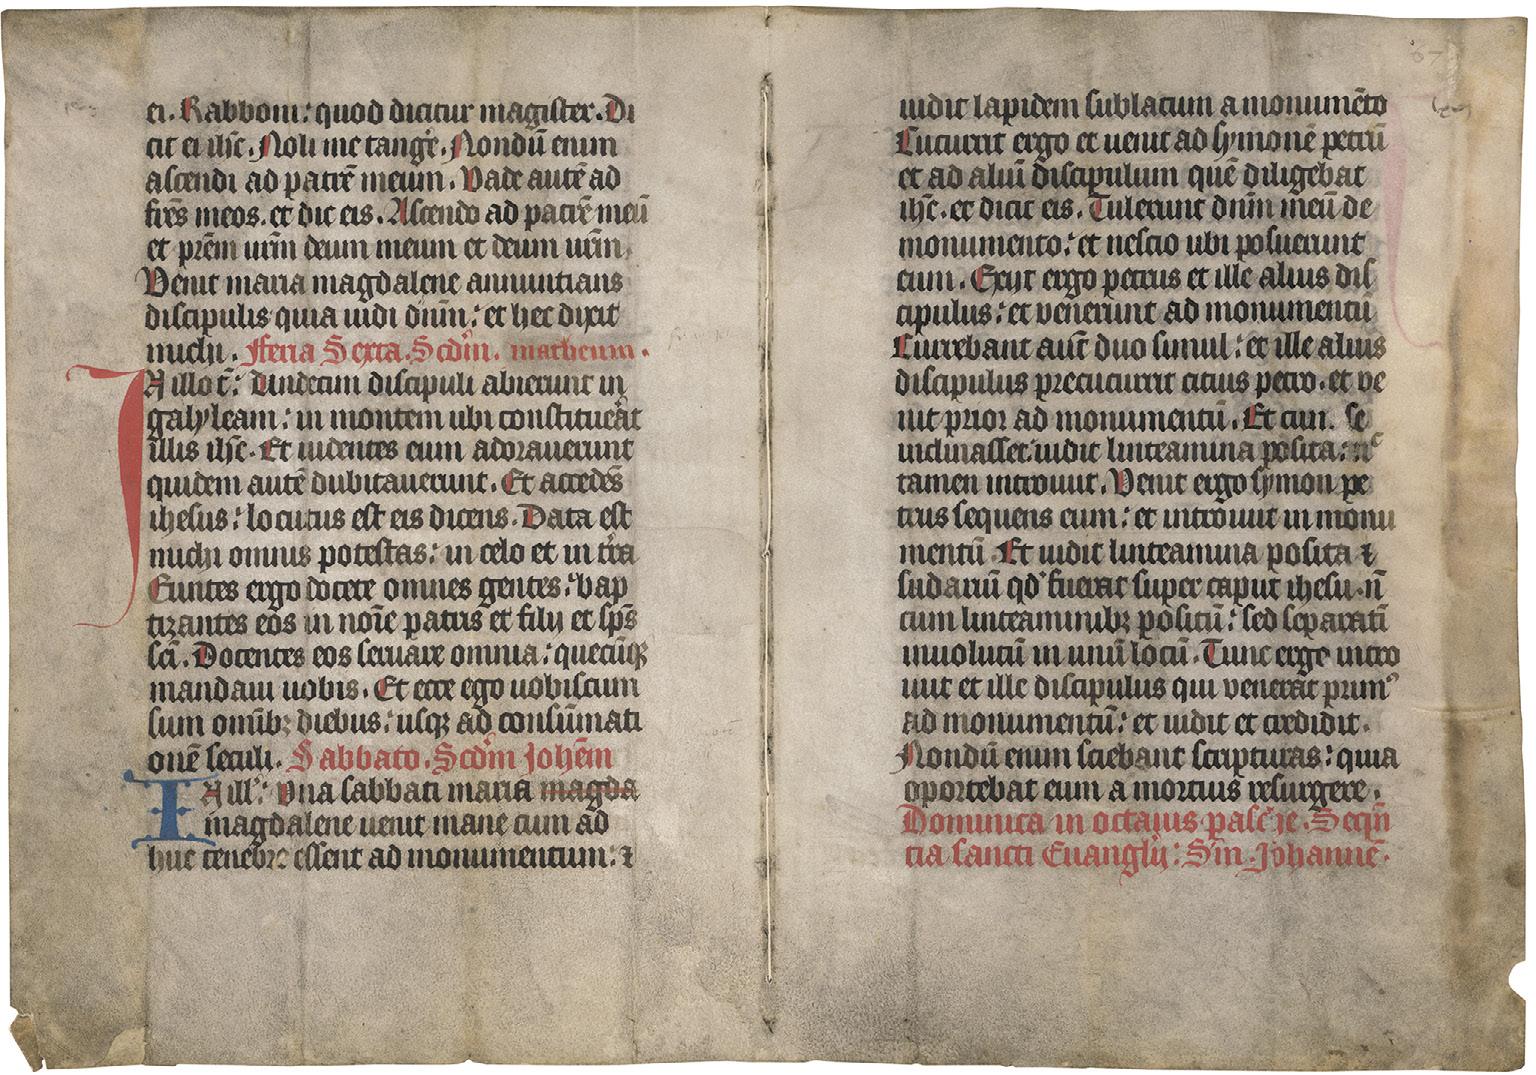 ei. Rabboni: quod dicitur magister. Di
cit ei ihc̄. Noli me tang̾e. Nondū enim
ascendi ad patrē meum. Vade autē ad
frēs meos. et dic eis. Ascendo ad patrē meū
et prēm vrm̄ deum meum et deum vrm̄.
Venit maria magdalene annuntians
discipulis quia uidi dnm̄: et hec dixit
michi. Feria Sexta. Scdm̄. matheum.
In illo t̄: Undecim discipuli abierunt in
galyleam: in montem ubi constituerat
illis ihc̄. Et uidentes eum adorauerunt
quidem autē dubitauerunt. Et accedēs
ihesus: locutus est eis dicens. Data est
michi omnis potestas: in celo et in tr̄a
Euntes ergo docete omnes gentes: bap
tizantes eos in noīe patris et filij et sp̄s
sc̄i. Docentes eos seruare omnia: quecūqꝫ
mandaui uobis. Et ecce ego uobiscum
sum omībꝫ diebus: usqꝫ ad consūmati
onē seculi. Sabbato. Scdm̄ Johēm
In ill̄: Vna sabbati maria magda
magdalene uenit mane cum ad
huc tenebre essent ad monumentum: ⁊
uidit lapidem sublatum a monumēto
Cucurrit ergo et uenit ad symonē petrū
et ad aliū discipulum quē diligebat
ihc̄. et dicit eis. Tulerunt dnm̄ meū de
monumento: et nescio ubi posuerunt
eum. Exijt ergo petrus et ille alius dis
cipulus: et venerunt ad monumentū
Currebant aut̄ duo simul: et ille alius
discipulus precucurrit citius petro. et ve
nit prior ad monumentū. Et cum se
inclinasset. uidit linteamina posita: nͨ
tamen introiuit. Venit ergo symon pe
trus sequens eum: et introiuit in monu
mentū. Et uidit linteamina posita ⁊
sudariū qd̓ fuerat super caput ihesu. nō
cum linteaminibꝫ positū: sed separatī
inuolutū in unū locū. Tunc ergo intro
iuit et ille discipulus qui venerat primꝰ
ad monumentū: et uidit et credidit.
Nondū enim sciebant scripturas: quia
oportebat eum a mortuis resurgere.
Dominica in octauis pasche. Seqn̄
tia sancti Euanglij: Sm̄. Johannē.
67